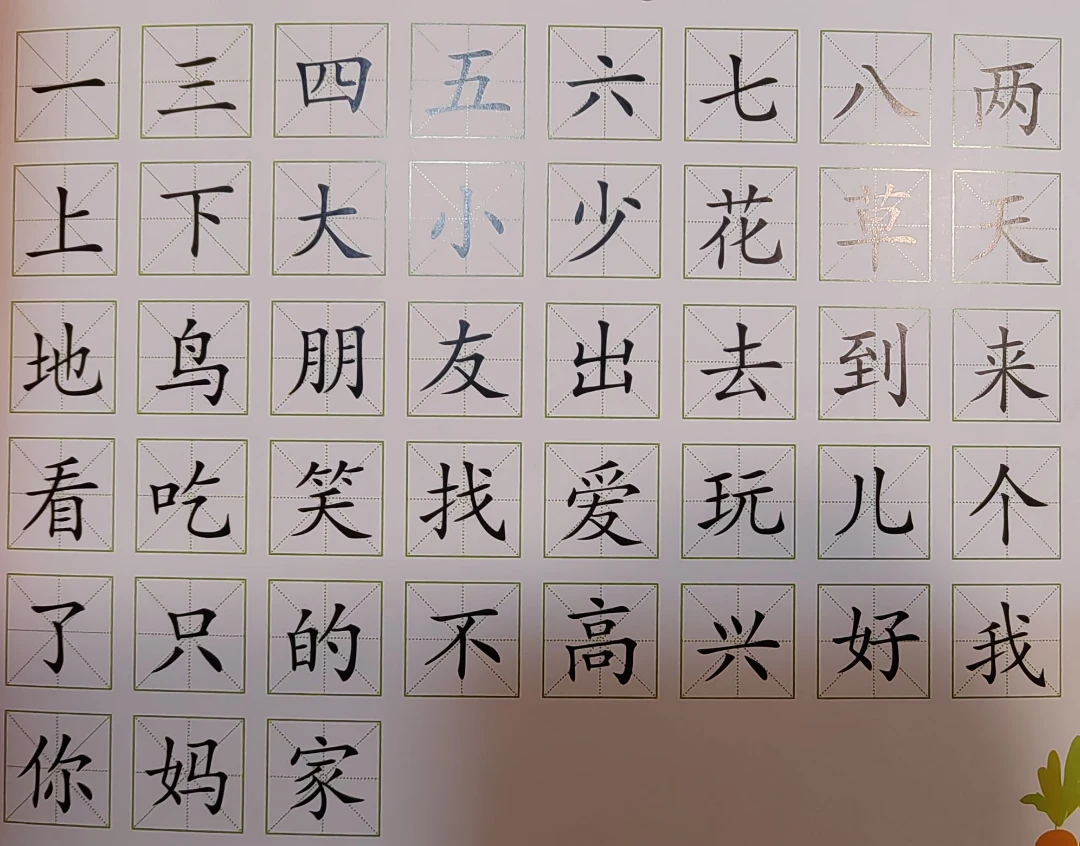 一 三 四 五 六 七 八 两
上 下 大 小 少 花 草 天
地 鸟 朋 友 出 去 到 来
看 吃 笑 找 爱 玩 儿 个
了 只 的 不 高 兴 好 我
你 妈 家